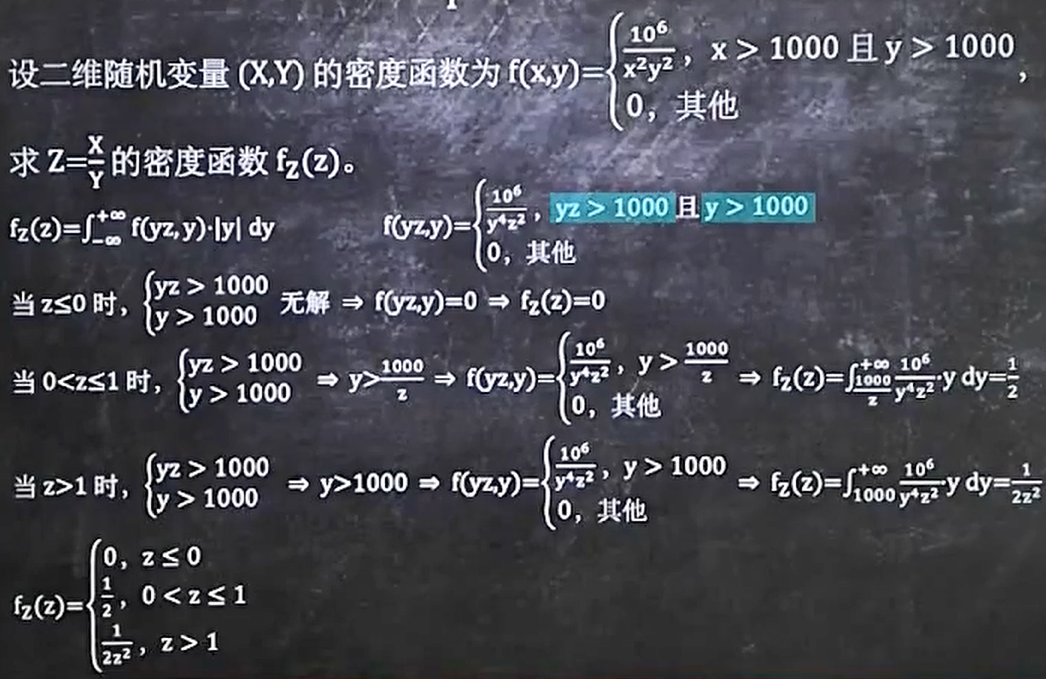 设二维随机变量 (X,Y) 的密度函数为 f(x,y)={10⁶/x²y², x > 1000 且 y > 1000; 0, 其他,
求 Z=X/Y 的密度函数 f_Z(z)。
f_Z(z)=∫_{-∞}^{+∞} f(yz,y)·|y| dy f(yz,y)={10⁶/y⁴z², yz > 1000 且 y > 1000; 0, 其他
当 z≤0 时, {yz > 1000; y > 1000 无解 ⇒ f(yz,y)=0 ⇒ f_Z(z)=0
当 0<z≤1 时, {yz > 1000; y > 1000 ⇒ y>1000/z ⇒ f(yz,y)={10⁶/y⁴z², y > 1000/z; 0, 其他 ⇒ f_Z(z)=∫_{1000/z}^{+∞} 10⁶/y⁴z²·y dy=1/2
当 z>1 时, {yz > 1000; y > 1000 ⇒ y>1000 ⇒ f(yz,y)={10⁶/y⁴z², y > 1000; 0, 其他 ⇒ f_Z(z)=∫_{1000}^{+∞} 10⁶/y⁴z²·y dy=1/2z²
f_Z(z)={0, z ≤ 0; 1/2, 0 < z ≤ 1; 1/2z², z > 1